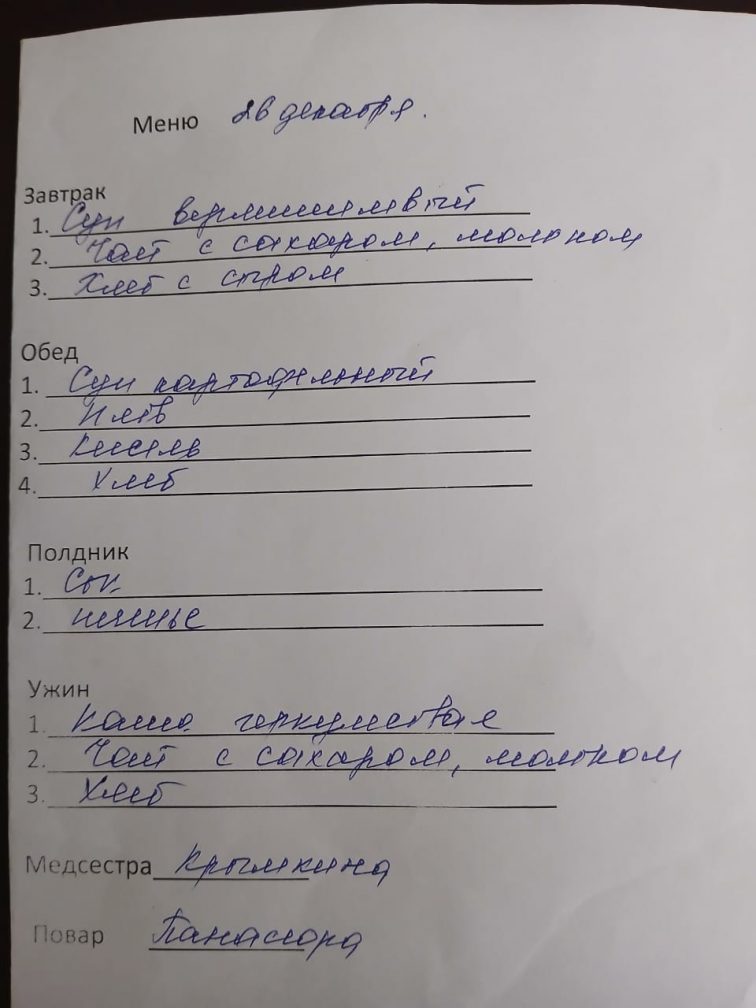 Меню 26 декабря.
Завтрак
1. Суп вермишелевый
2. Чай с сахаром, молоком
3. Хлеб с сыром
Обед
1. Суп картофельный
2. Плов
3. Кисель
4. Хлеб
Полдник
1. Сок
2. печенье
Ужин
1. Каша геркулесовая
2. Чай с сахаром, молоком
3. Хлеб
Медсестра Крымкина
Повар